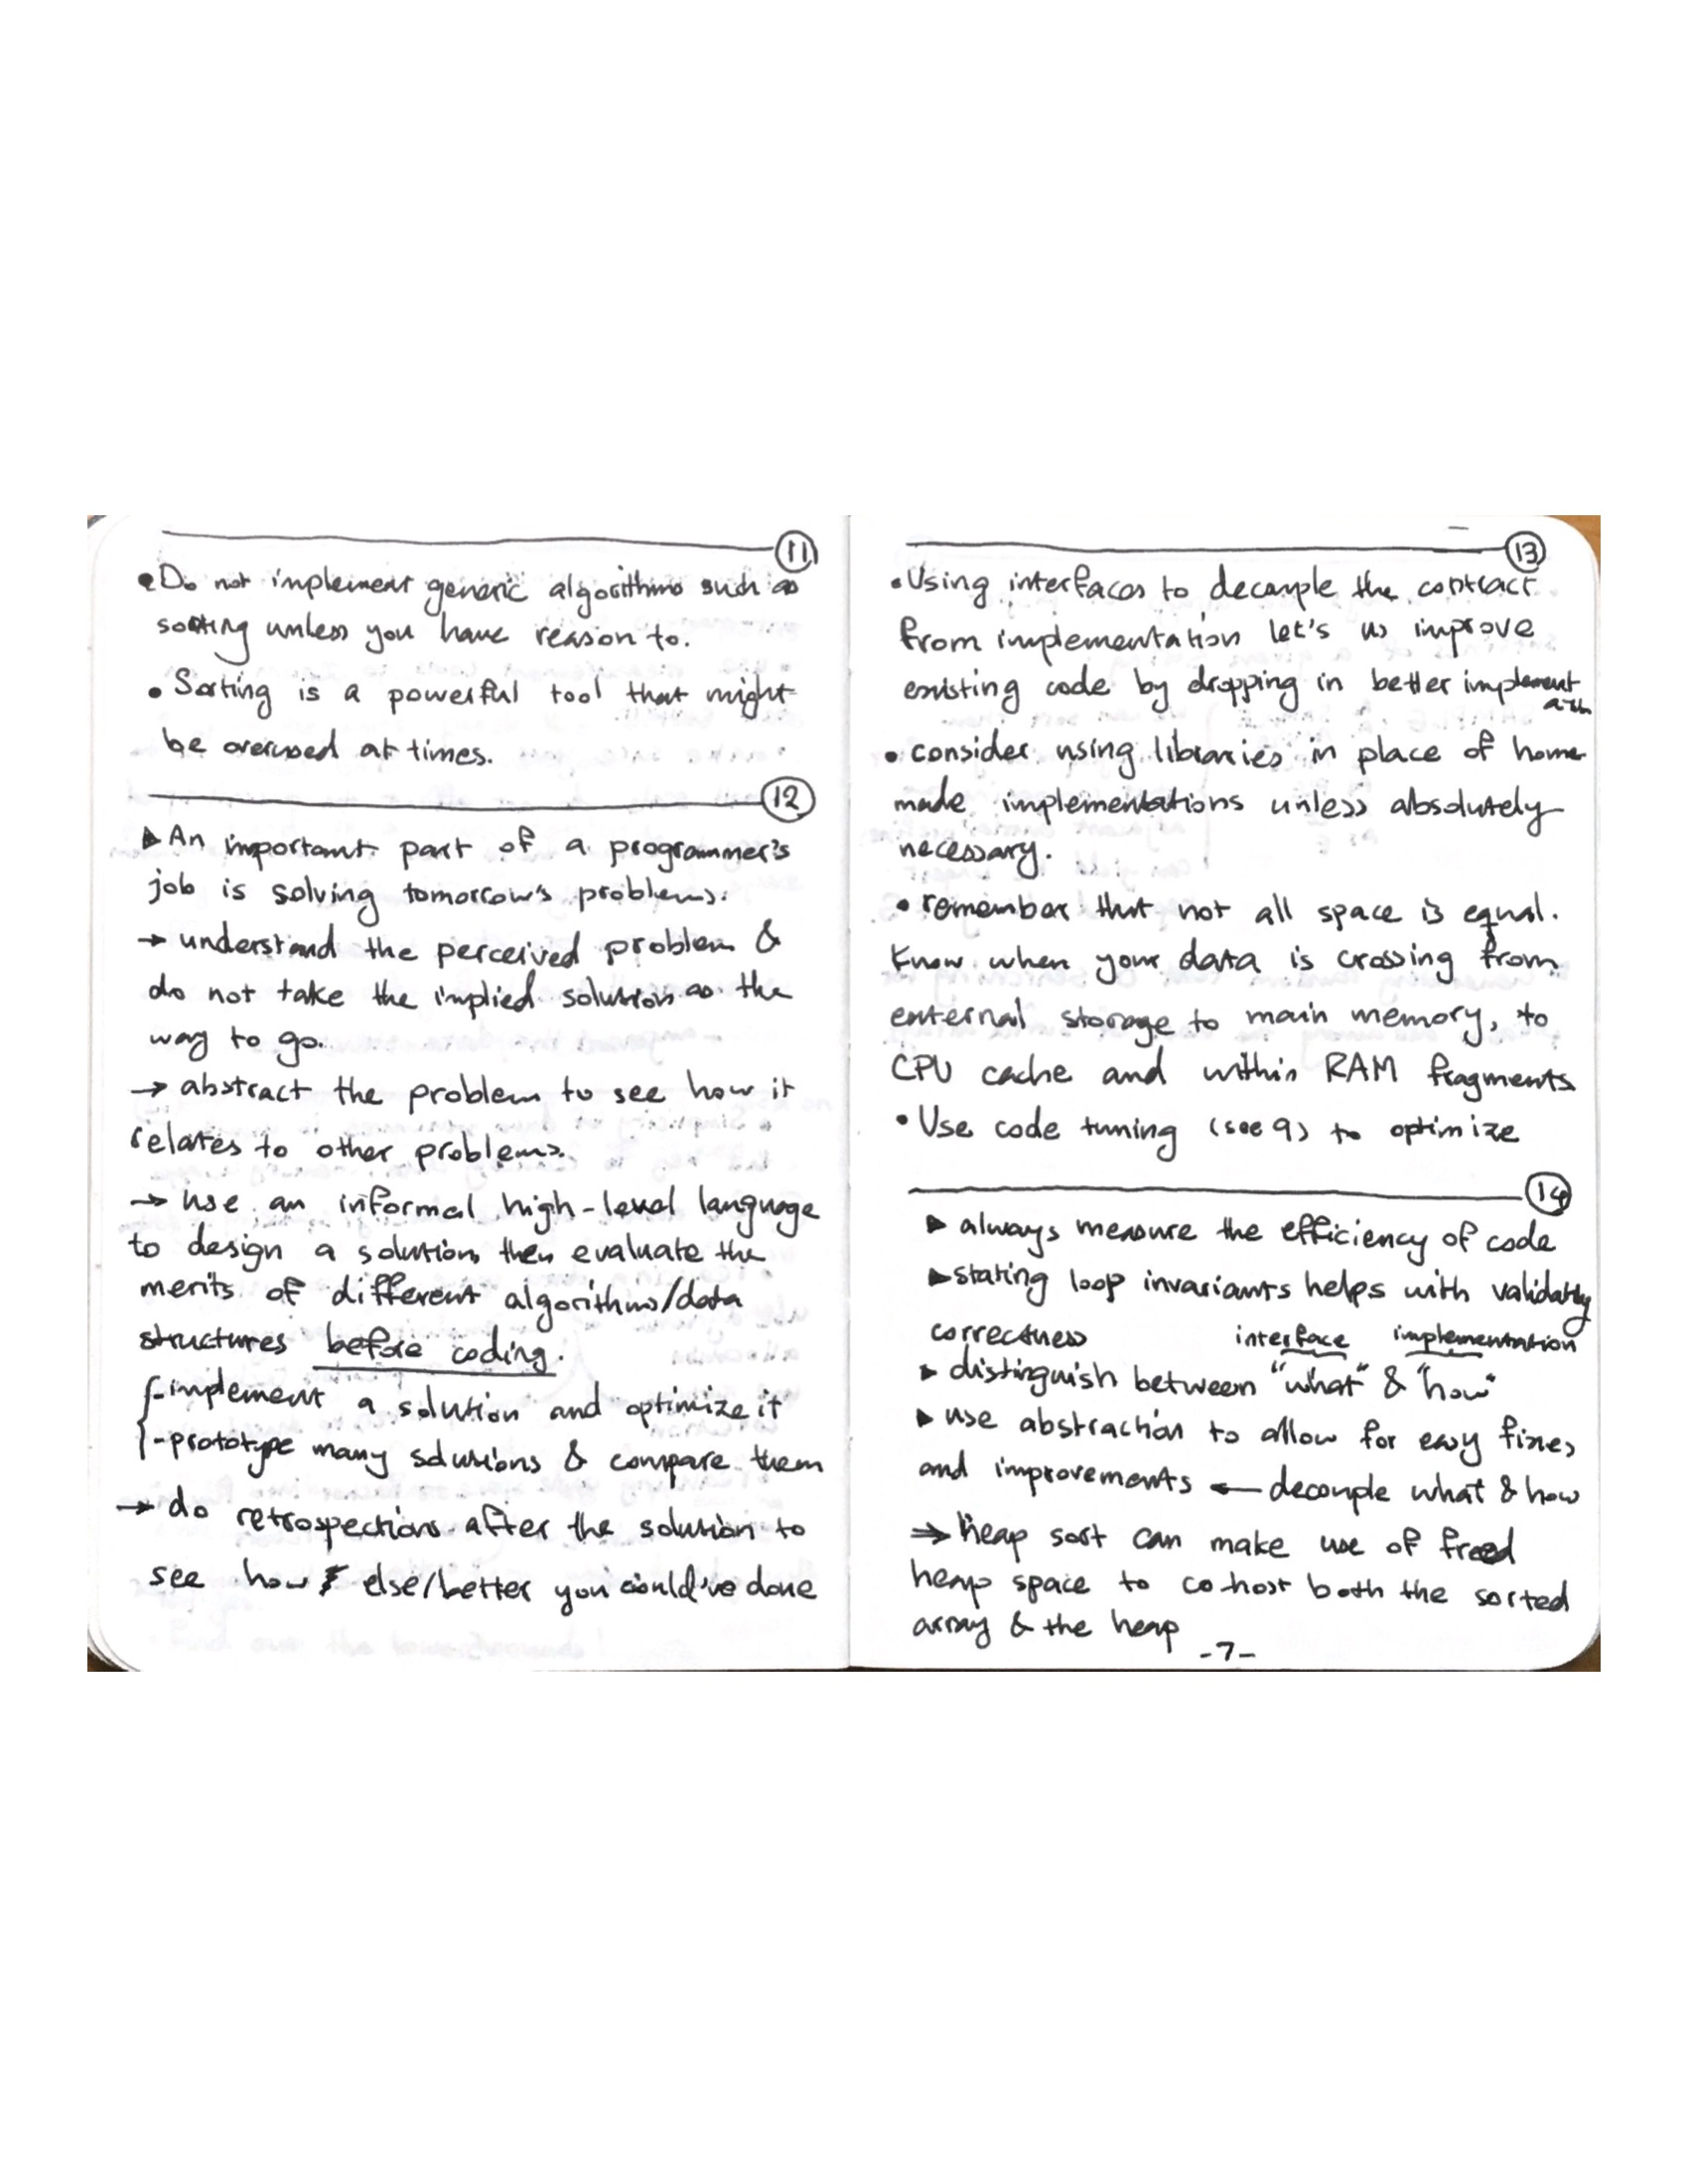 11
• Do not implement generic algorithms such as
sorting unless you have reason to.
• Sorting is a powerful tool that might
be overused at times.
12
▶ An important part of a programmer's
job is solving tomorrow's problems.
→ understand the perceived problem &
do not take the implied solution as the
way to go.
→ abstract the problem to see how it
relates to other problems.
→ use an informal high-level language
to design a solution, then evaluate the
merits of different algorithms/data
structures before coding.
- implement a solution and optimize it
- prototype many solutions & compare them
→ do retrospections after the solution to
see how else/better you could've done
13
• Using interfaces to decouple the contract
from implementation let's us improve
existing code by dropping in better implement
ation
• consider using libraries in place of home
made implementations unless absolutely
necessary.
• remember that not all space is equal.
Know when your data is crossing from
external storage to main memory, to
CPU cache and within RAM fragments
• Use code tuning (see 9) to optimize
14
▶ always measure the efficiency of code
▶ stating loop invariants helps with validating
correctness interface implementation
▶ distinguish between "what" & "how"
▶ use abstraction to allow for easy fixes
and improvements ← decouple what & how
⇒ heap sort can make use of freed
heap space to co-host both the sorted
array & the heap
-7-